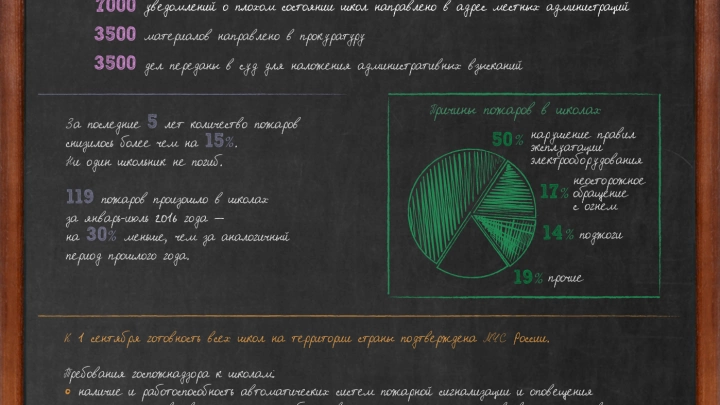 7000 уведомлений о плохом состоянии школ направлено в адрес местных администраций
3500 материалов направлено в прокуратуру
3500 дел переданы в суд для наложения административных взысканий
За последние 5 лет количество пожаров
снизилось более чем на 15%.
Ни один школьник не погиб.
119 пожаров произошло в школах
за январь-июль 2016 года —
на 30% меньше, чем за аналогичный
период прошлого года.
Причины пожаров в школах
50% нарушение правил
эксплуатации
электрооборудования
17% неосторожное
обращение
с огнем
14% поджоги
19% прочие
К 1 сентября готовность всех школ на территории страны подтверждена МЧС России.
Требования госпожнадзора к школам:
наличие и работоспособность автоматических систем пожарной сигнализации и оповещения